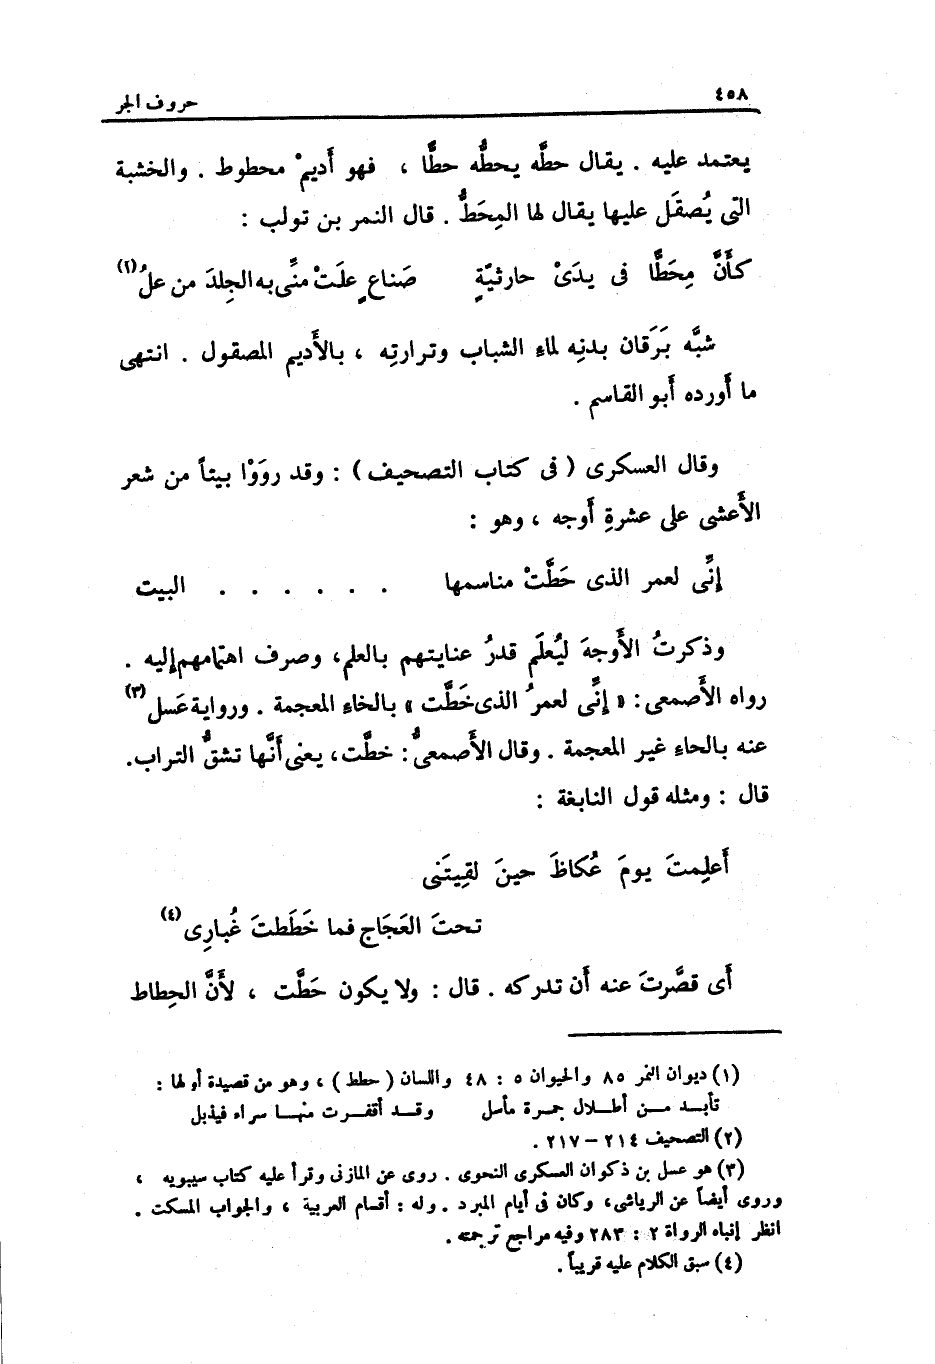 ٤٥٨
حروف الجر
يعتمد عليه . يقال حطَّه يحطُّه حطًّا ، فهو أَديمٌ محطوط . والخشبة
التى يُصقَل عليها يقال لها المِحَطُّ . قال النمر بن تولب :
كأَنَّ مِحَطًّا فى يدَىْ حارثيّةٍ صَناعٍ علَتْ منِّى به الجِلدَ من علُ(١)
شبَّه بَرَقان بدنِه لماءِ الشباب وترارتِه ، بالأَديم المصقول . انتهى
ما أَورده أَبو القاسم .
وقال العسكرى ( فى كتاب التصحيف ) : وقد روَوْا بيتاً من شعر
الأَعشى على عشرةِ أَوجه ، وهو :
إنِّى لعمر الذى حَطَّتْ مناسمها . . . . . . البيت
وذكرتُ الأَوجهَ ليُعلَم قدرُ عنايتهم بالعلم، وصرف اهتمامهم إليه .
رواه الأَصمعى: « إنِّى لعمرُ الذى خَطَّت » بالخاء المعجمة . ورواية عَسل(٣)
عنه بالحاء غير المعجمة . وقال الأَصمعىُّ: خطَّت، يعنى أَنَّها تشقُّ التراب.
قال : ومثله قول النابغة :
أَعلِمتَ يومَ عُكاظَ حينَ لقِيتَنى
تحتَ العَجَاج فما خَطَطتَ غُبارِى(٤)
أَى قصَّرتَ عنه أَن تدركه . قال : ولا يكون حَطَّت ، لأَنَّ الحِطاط
(١) ديوان النمر ٨٥ والحيوان ٥ : ٤٨ واللسان ( حطط ) ، وهو من قصيدة أولها :
تأبـد مـن أطـلال جمـرة مأسل وقـد أقفـرت منهـا سراء فيذبل
(٢) التصحيف ٢١٤ – ٢١٧ .
(٣) هو عسل بن ذكوان العسكرى النحوى . روى عن المازنى وقرأ عليه كتاب سيبويه ،
وروى أيضاً عن الرياشى، وكان فى أيام المبرد . وله : أقسام العربية ، والجواب المسكت .
انظر إنباه الرواة ٢ : ٢٨٣ وفيه مراجع ترجمته .
(٤) سبق الكلام عليه قريباً .